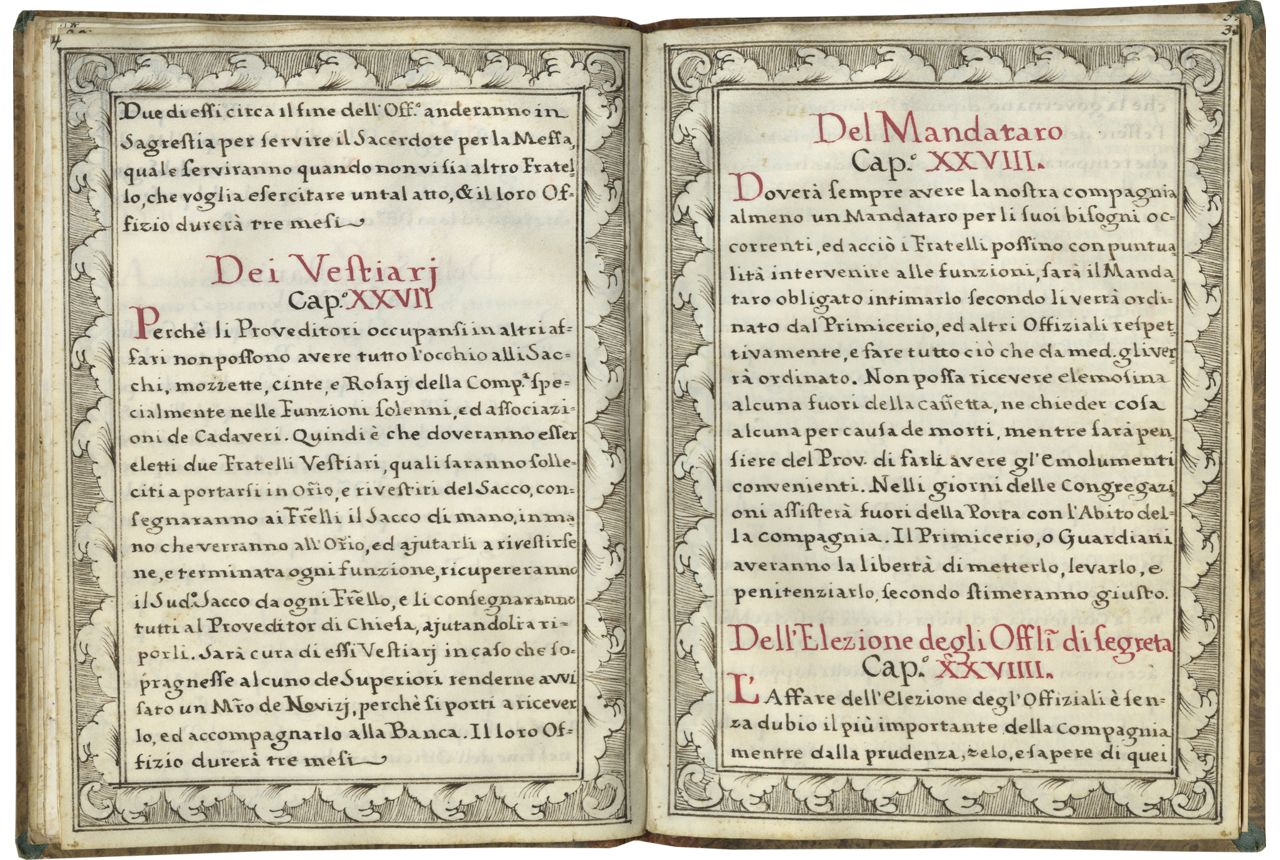 Due di eſſi circa il fine dell'Off.º anderanno in
Sagreſtia per ſervire il Sacerdote per la Meſſa,
quale ſerviranno quando non vi sia altro Fratel=
lo, che voglia eſercitare un tal atto, & il loro Of=
fizio durerà tre meſi
Dei Veſtiarj
Cap.º XXVII
Perchè li Proveditori occupanſi in altri af=
fari non poſſono avere tutto l'occhio alli Sac=
chi, mozzette, cinte, e Roſarj della Comp.ª ſpe=
cialmente nelle Funzioni ſolenni, ed aſſociazi=
oni de Cadaveri. Quindi è che doveranno eſſer
eletti due Fratelli Veſtiari, quali ſaranno ſolle=
citi a portarſi in Or̃io, e riveſtiti del Sacco, con=
ſegnaranno ai Fr̃elli il Sacco di mano, in ma
no che verranno all'Or̃io, ed ajutarli a riveſtirſe
ne, e terminata ogni funzione, ricupereranno
il Sud.º Sacco da ogni Fr̃ello, e li conſegnaranno
tutti al Proveditor di Chieſa, ajutandoli a ri=
porli. Sarà cura di eſſi Veſtiarj in caſo che ſo=
pragneſſe alcuno de Superiori renderne avvi
ſato un Mr̃o de Novizj, perchè ſi porti a ricever
lo, ed accompagnarlo alla Banca. Il loro Of=
fizio durerà tre meſi
3
Del Mandataro
Cap.º XXVIII.
Doverà ſempre avere la noſtra compagnia
almeno un Mandataro per li ſuoi biſogni oc=
correnti, ed acciò i Fratelli poſſino con puntua
lità intervenire alle funzioni, ſarà il Manda=
taro obligato intimarlo ſecondo li verrà ordi=
nato dal Primicerio, ed altri Offiziali reſpet=
tivamente, e fare tutto ciò che da med. gli ver
rà ordinato. Non poſſa ricevere elemoſina
alcuna fuori della caſſetta, ne chieder coſa
alcuna per cauſa de morti, mentre ſarà pen=
ſiere del Prov. di farli avere gl'Emolumenti
convenienti. Nelli giorni delle Congregazi
oni aſſiſterà fuori della Porta con l'Abito del=
la compagnia. Il Primicerio, o Guardiani
averanno la libertà di metterlo, levarlo, e
penitenziarlo, ſecondo ſtimeranno giuſto.
Dell'Elezione degli Offl̃i di ſegreta
Cap.º XXVIIII.
L'Affare dell'Elezione degl'Offiziali è ſen=
za dubio il più importante della Compagnia
mentre dalla prudenza, zelo, e ſapere di quei